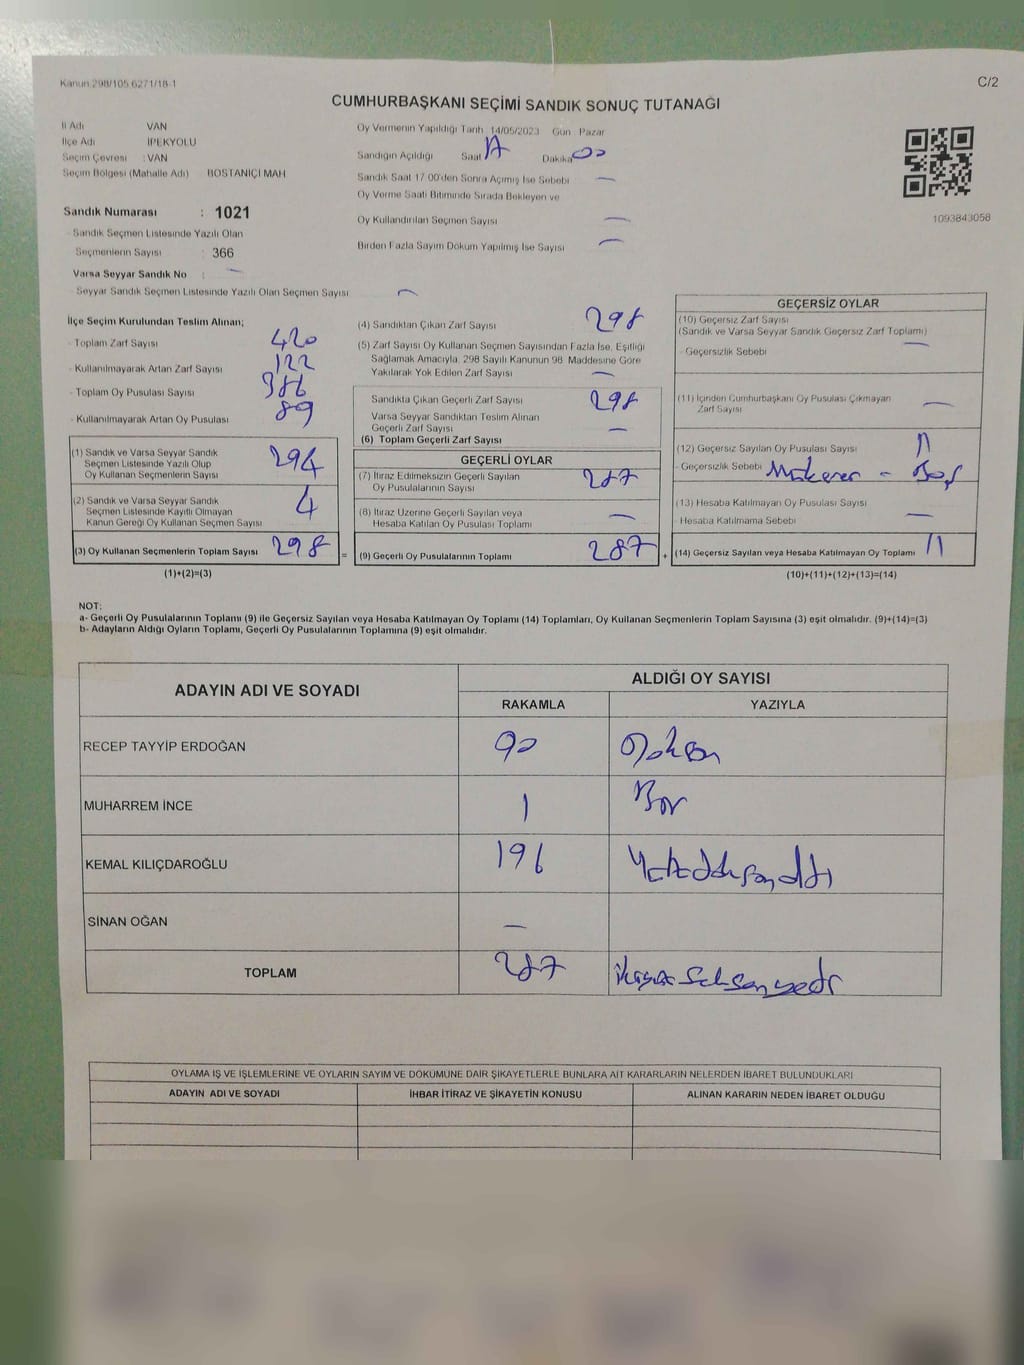 Kanun 298/105 6271/18-1
C/2
CUMHURBAŞKANI SEÇİMİ SANDIK SONUÇ TUTANAĞI
İl Adı VAN
İlçe Adı İPEKYOLU
Seçim Çevresi : VAN
Seçim Bölgesi (Mahalle Adı) BOSTANİÇİ MAH
Sandık Numarası : 1021
Sandık Seçmen Listesinde Yazılı Olan
Seçmenlerin Sayısı : 366
Varsa Seyyar Sandık No : —
Seyyar Sandık Seçmen Listesinde Yazılı Olan Seçmen Sayısı —
Oy Vermenin Yapıldığı Tarih 14/05/2023 Gün Pazar
Sandığın Açıldığı Saat Dakika 00
Sandık Saat 17:00'den Sonra Açılmış İse Sebebi —
Oy Verme Saati Bitiminde Sırada Bekleyen ve
Oy Kullandırılan Seçmen Sayısı —
Birden Fazla Sayım Döküm Yapılmış İse Sayısı —
1093843058
İlçe Seçim Kurulundan Teslim Alınan;
- Toplam Zarf Sayısı 420
- Kullanılmayarak Artan Zarf Sayısı 122
- Toplam Oy Pusulası Sayısı 386
- Kullanılmayarak Artan Oy Pusulası 89
(1) Sandık ve Varsa Seyyar Sandık
Seçmen Listesinde Yazılı Olup
Oy Kullanan Seçmenlerin Sayısı 294
(2) Sandık ve Varsa Seyyar Sandık
Seçmen Listesinde Kayıtlı Olmayan
Kanun Gereği Oy Kullanan Seçmen Sayısı 4
(3) Oy Kullanan Seçmenlerin Toplam Sayısı 298 =
(1)+(2)=(3)
(4) Sandıktan Çıkan Zarf Sayısı 298
(5) Zarf Sayısı Oy Kullanan Seçmen Sayısından Fazla İse, Eşitliği
Sağlamak Amacıyla, 298 Sayılı Kanunun 98. Maddesine Göre
Yakılarak Yok Edilen Zarf Sayısı —
Sandıkta Çıkan Geçerli Zarf Sayısı 298
Varsa Seyyar Sandıktan Teslim Alınan
Geçerli Zarf Sayısı —
(6) Toplam Geçerli Zarf Sayısı
GEÇERLİ OYLAR
(7) İtiraz Edilmeksizin Geçerli Sayılan
Oy Pusulalarının Sayısı 287
(8) İtiraz Üzerine Geçerli Sayılan veya
Hesaba Katılan Oy Pusulası Toplamı —
(9) Geçerli Oy Pusulalarının Toplamı 287 +
GEÇERSİZ OYLAR
(10) Geçersiz Zarf Sayısı
(Sandık ve Varsa Seyyar Sandık Geçersiz Zarf Toplamı) —
- Geçersizlik Sebebi
(11) İçinden Cumhurbaşkanı Oy Pusulası Çıkmayan
Zarf Sayısı —
(12) Geçersiz Sayılan Oy Pusulası Sayısı 11
- Geçersizlik Sebebi Mükerer - Boş
(13) Hesaba Katılmayan Oy Pusulası Sayısı
- Hesaba Katılmama Sebebi —
(14) Geçersiz Sayılan veya Hesaba Katılmayan Oy Toplamı 11
(10)+(11)+(12)+(13)=(14)
NOT:
a- Geçerli Oy Pusulalarının Toplamı (9) ile Geçersiz Sayılan veya Hesaba Katılmayan Oy Toplamı (14) Toplamları, Oy Kullanan Seçmenlerin Toplam Sayısına (3) eşit olmalıdır. (9)+(14)=(3)
b- Adayların Aldığı Oyların Toplamı, Geçerli Oy Pusulalarının Toplamına (9) eşit olmalıdır.
ADAYIN ADI VE SOYADI ALDIĞI OY SAYISI
RAKAMLA YAZIYLA
RECEP TAYYİP ERDOĞAN 90 Doksan
MUHARREM İNCE 1 Bir
KEMAL KILIÇDAROĞLU 196 Yüzdoksanaltı
SİNAN OĞAN —
TOPLAM 287 ikiyüzseksenyedi
OYLAMA İŞ VE İŞLEMLERİNE VE OYLARIN SAYIM VE DÖKÜMÜNE DAİR ŞİKAYETLERLE BUNLARA AİT KARARLARIN NELERDEN İBARET BULUNDUKLARI
ADAYIN ADI VE SOYADI İHBAR İTİRAZ VE ŞİKAYETİN KONUSU ALINAN KARARIN NEDEN İBARET OLDUĞU